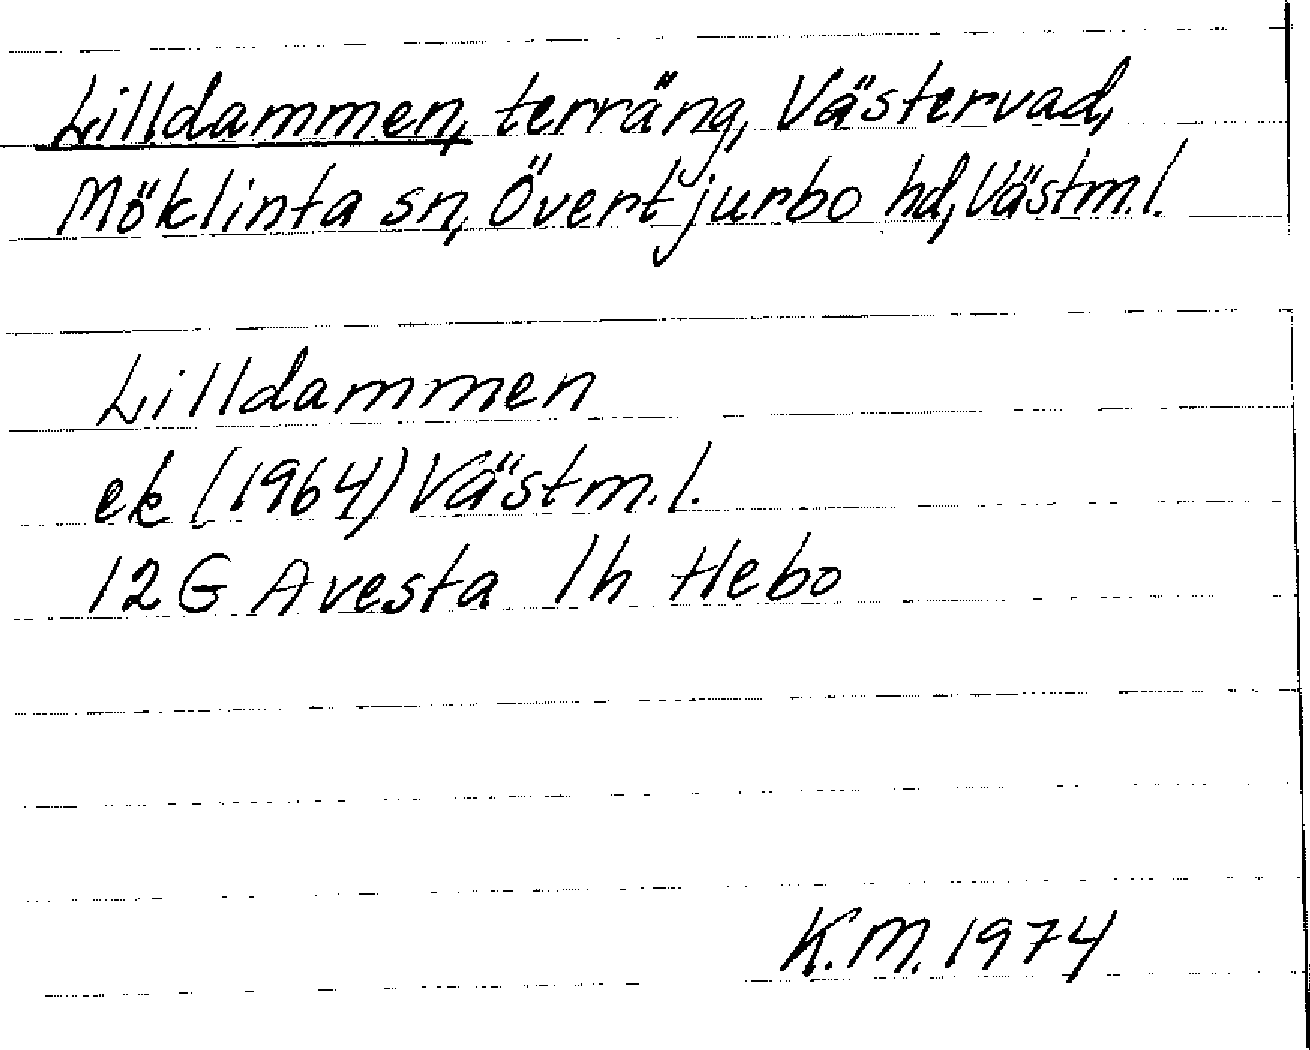 Lilldammen, terräng, Västervad,
Möklinta sn, Övertjurbo hd, Västm.l.
Lilldammen
ek (1964) Västm.l.
12G Avesta 1h Hebo
K.M. 1974